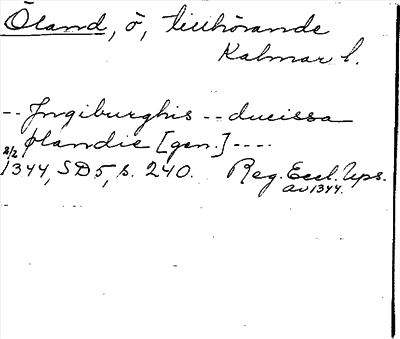 Öland, ö, tillhörande
Kalmar l.
-- Ingiburghis -- ducissa
ølandie [gen.] ----
2/2 1344, SD5, s. 240. Reg. Eccl. Ups.
av 1344.